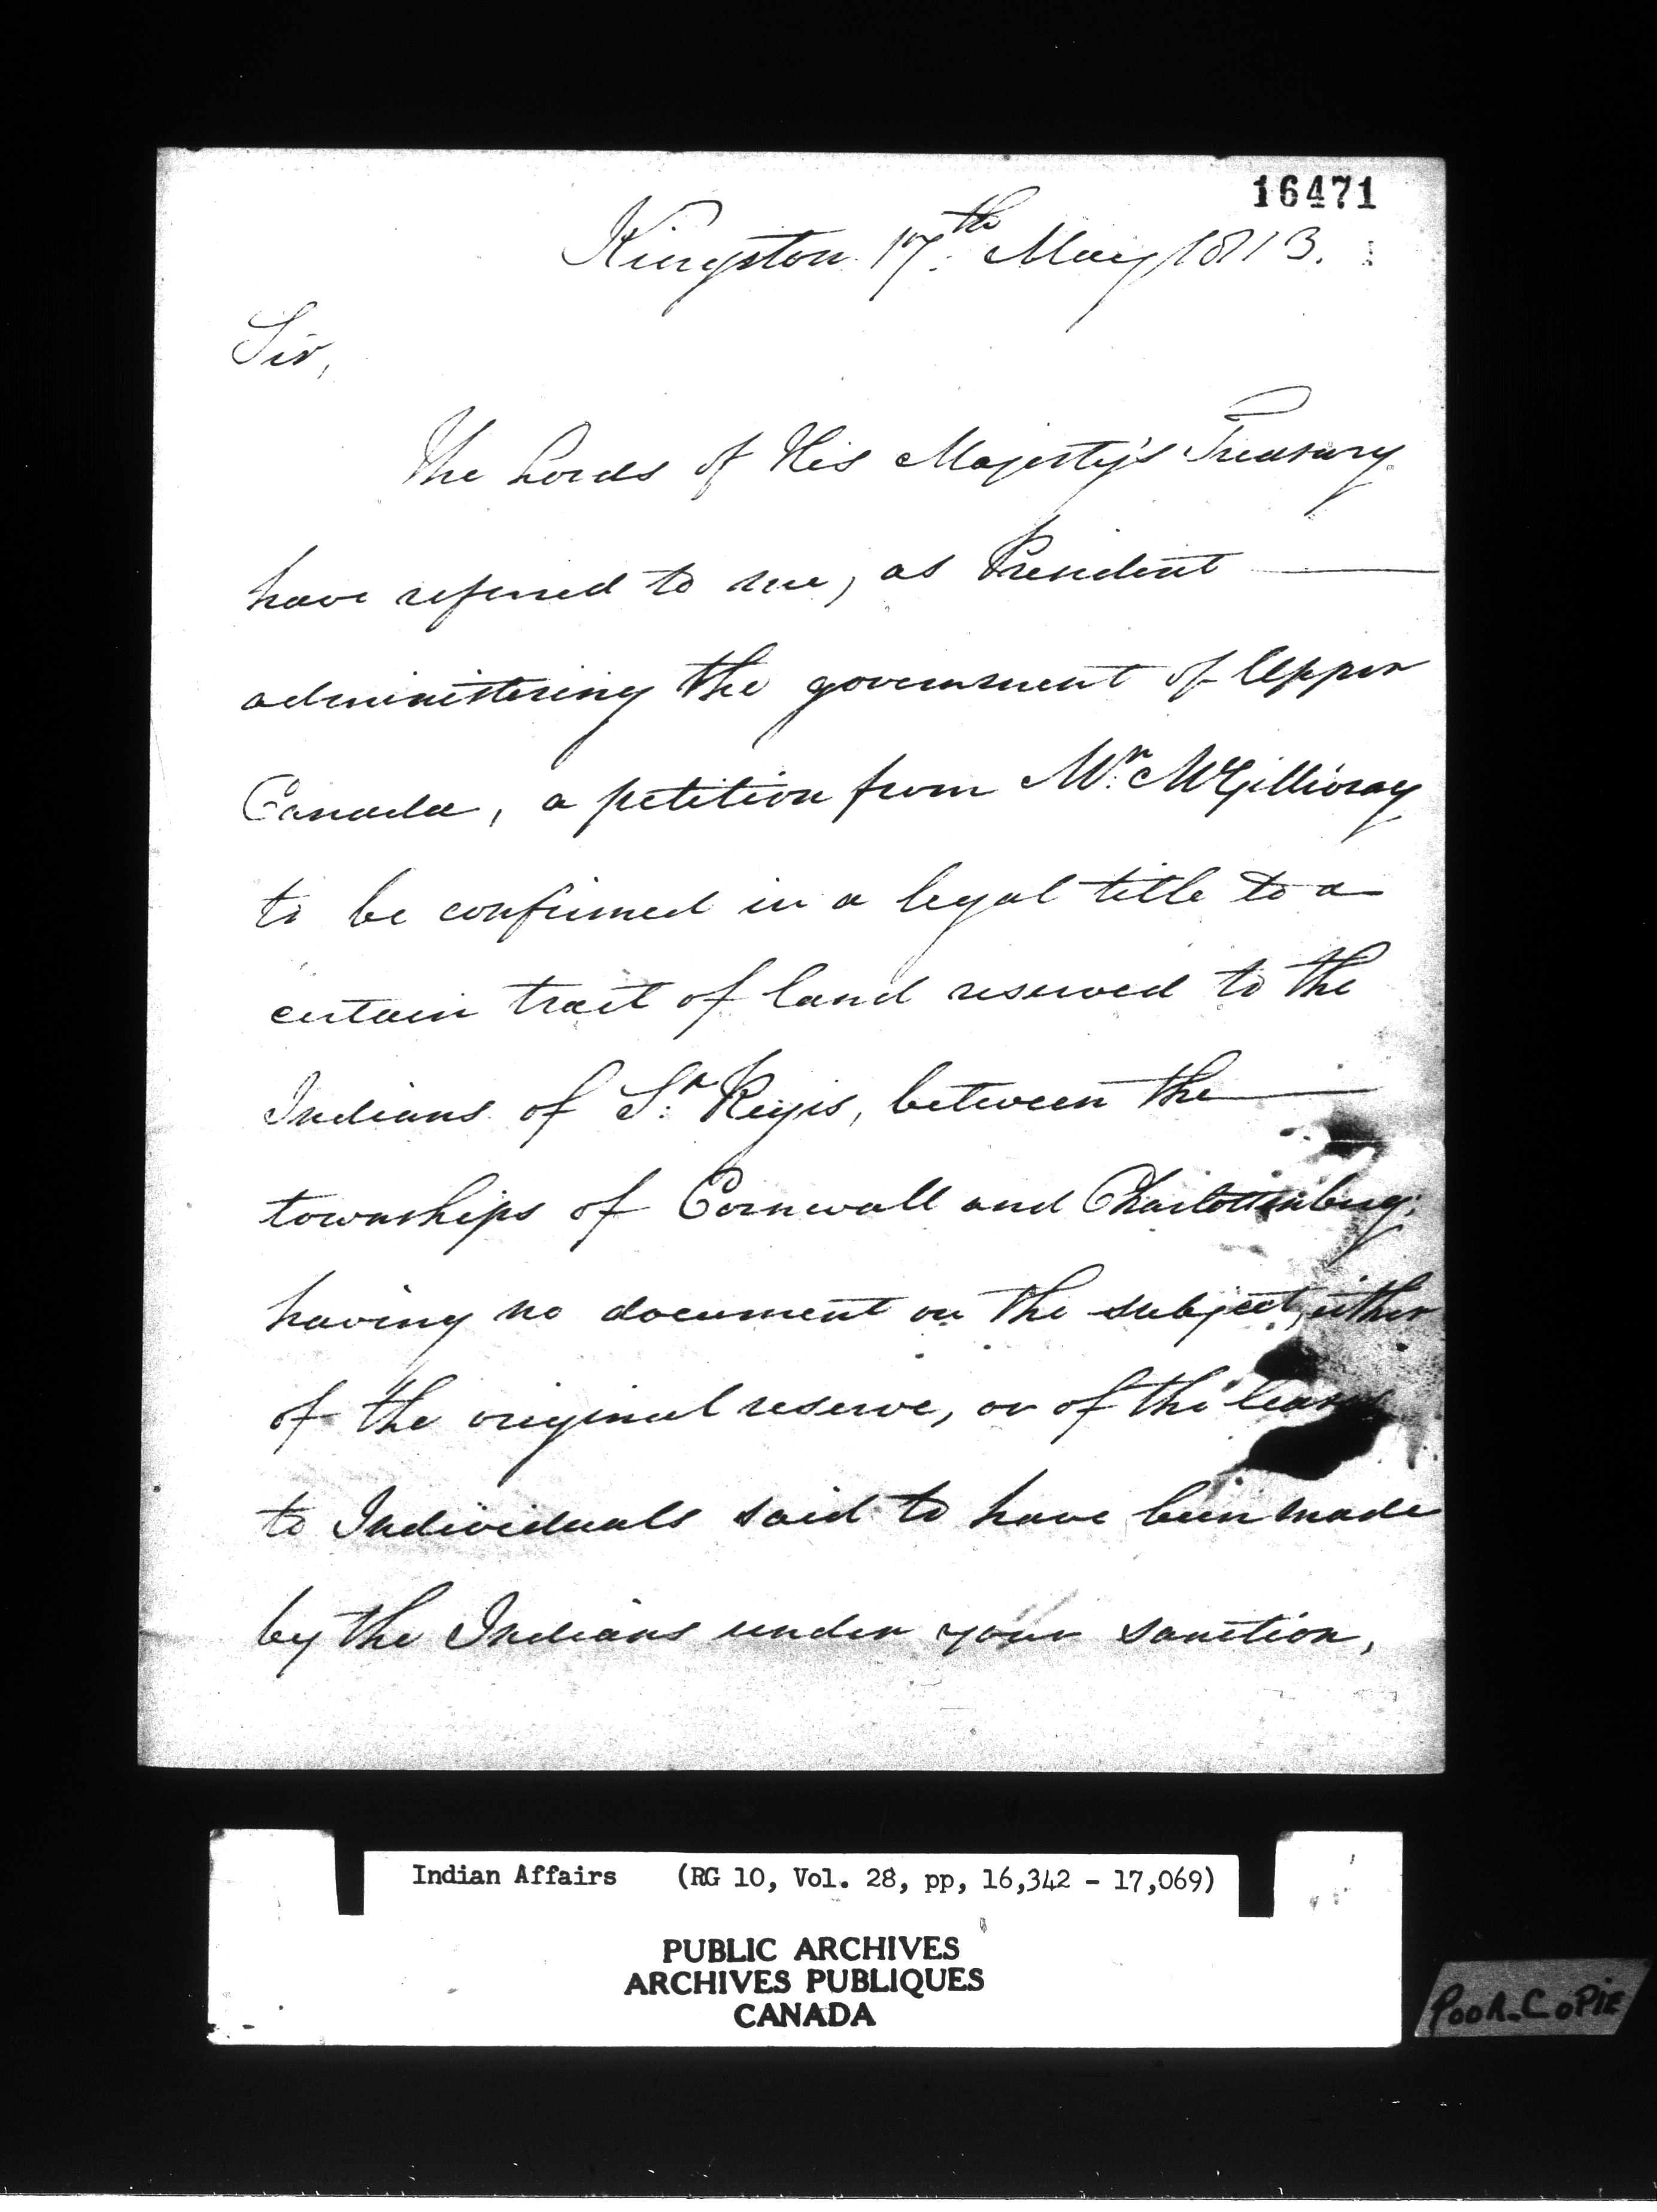 16471
Kingston 17th May 1813.
Sir,
The Lords of His Majesty's Treasury
have referred to me, as President
administering the government of Upper
Canada, a petition from Mr. McGillivray
to be confirmed in a legal title to a
certain tract of land reserved to the
Indians of St. Regis, between the
townships of Cornwall and Charlottenburg;
having no document on the subject, either
of the original reserve, or of the leases
to Individuals said to have been made
by the Indians under your sanction,
Indian Affairs (RG 10, Vol. 28, pp, 16,342 - 17,069)
PUBLIC ARCHIVES
ARCHIVES PUBLIQUES
CANADA
POOR COPIE